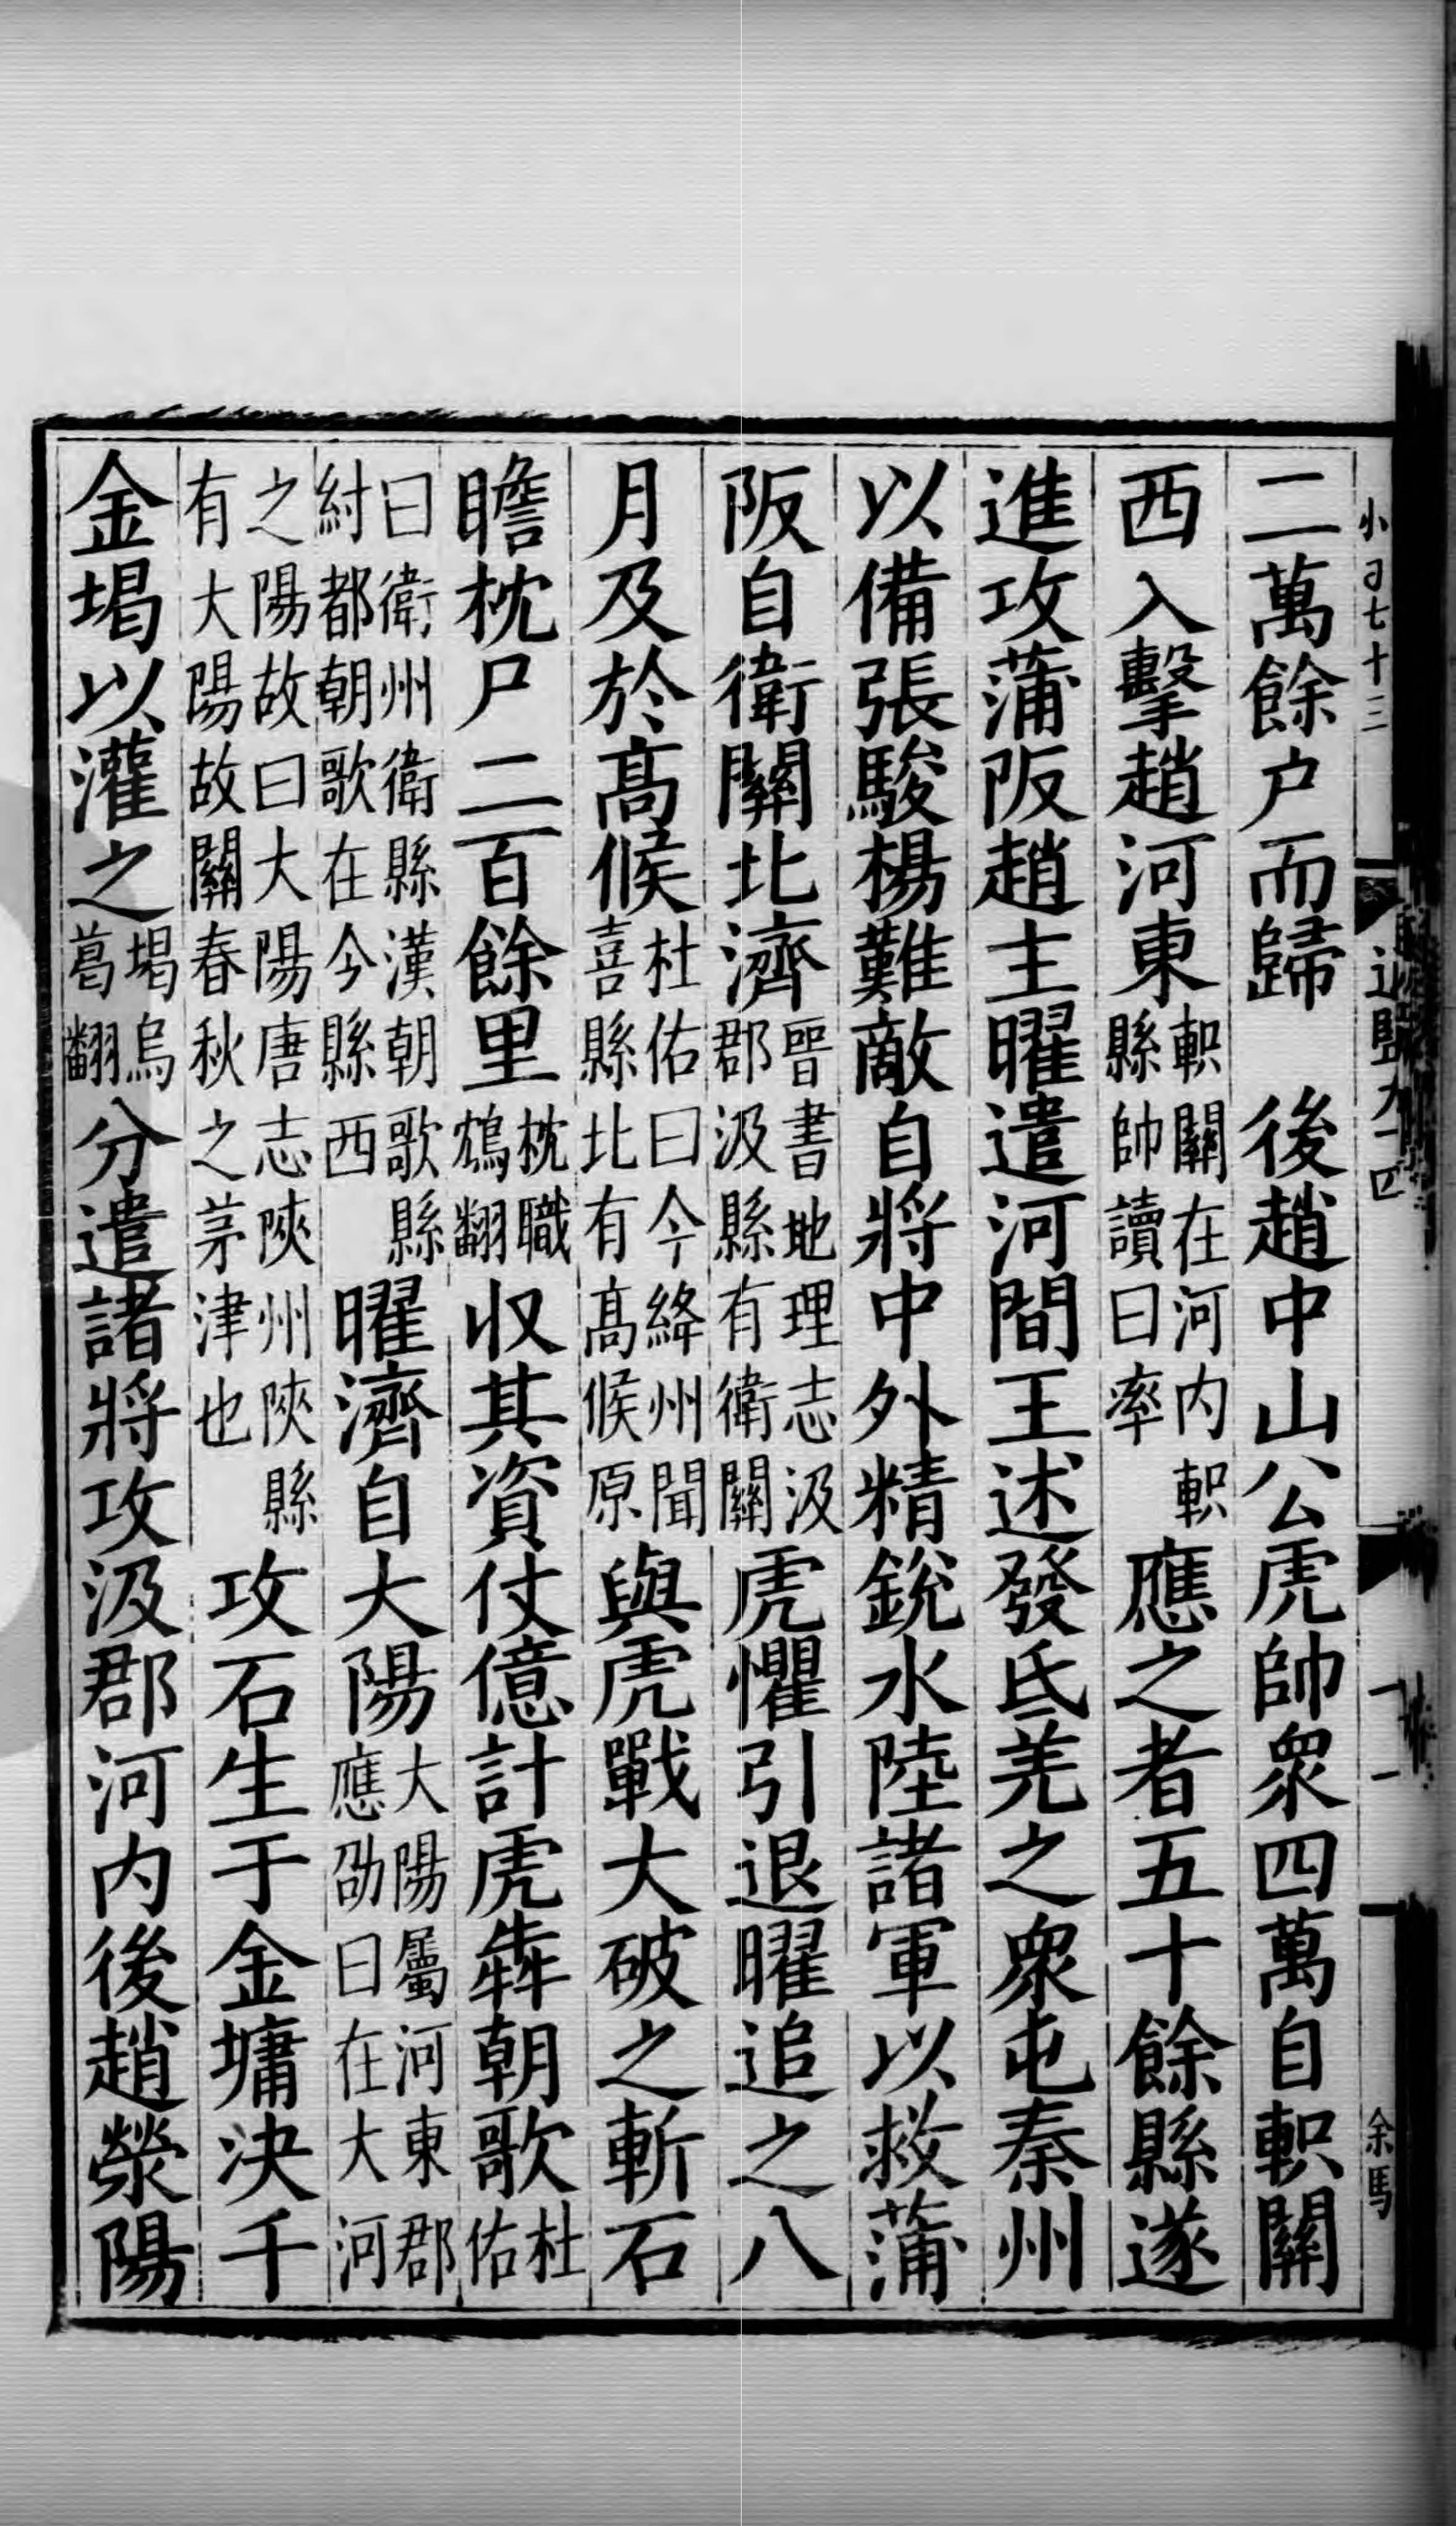 二萬餘户而歸　後趙中山公虎帥衆四萬自軹關
西入擊趙河東軹關在河内軹縣帥讀曰率應之者五十餘縣遂
進攻蒲阪趙主曜遣河間王述發氐羌之衆屯秦州
以備張駿楊難敵自將中外精銳水陸諸軍以救蒲
阪自衛關北濟晉書地理志汲郡汲縣有衛關虎懼引退曜追之八
月及於髙候杜佑曰今絳州聞喜縣北有髙候原與虎戰大破之斬石
瞻枕尸二百餘里枕職鴆翻収其資仗億計虎犇朝歌杜佑
曰衛州衛縣漢朝歌縣紂都朝歌在今縣西曜濟自大陽大陽屬河東郡應劭曰在大河
之陽故曰大陽唐志陜州陜縣有大陽故關春秋之茅津也攻石生于金墉決千
金堨以灌之堨烏葛翻分遣諸將攻汲郡河内後趙滎陽